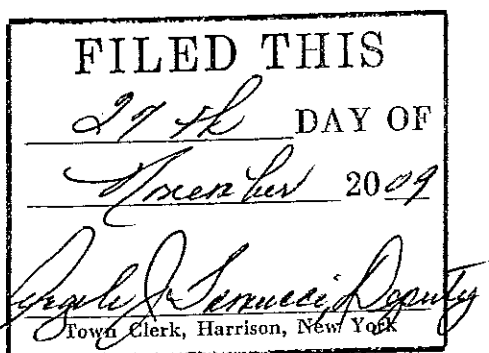 FILED THIS
27th DAY OF
November 2009
J. Deputy
Town Clerk, Harrison, New York